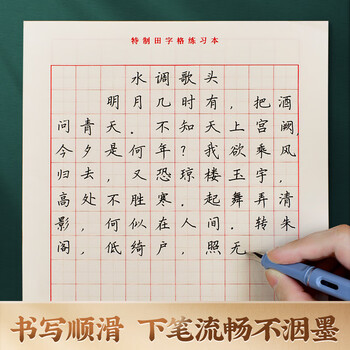 特制田字格练习本
水调歌头
明月几时有，把酒
问青天．不知天上宫阙，
今夕是何年？我欲乘风
归去，又恐琼楼玉宇，
高处不胜寒．起舞弄清
影，何似在人间．转朱
阁，低绮户，照无
书写顺滑 下笔流畅不洇墨